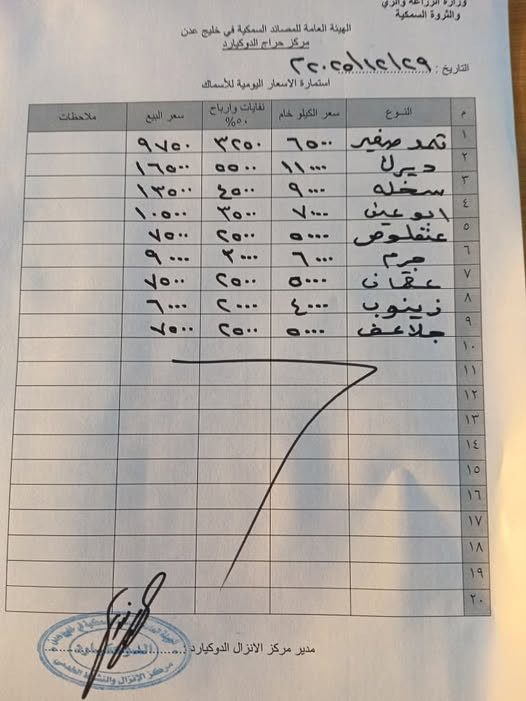 وزارة الزراعة والري
والثروة السمكية
الهيئة العامة للمصائد السمكية في خليج عدن
مركز حراج الدوكيارد
التاريخ : ٢٠٢٥/١٢/٢٩م
استمارة الاسعار اليومية للأسماك
م النوع سعر الكيلو خام نفايات وارباح ٥٠% سعر البيع ملاحظات
١ ثمد صغير ٦٥٠٠ ٣٢٥٠ ٩٧٥٠
٢ ديرك ١١٠٠٠ ٥٥٠٠ ١٦٥٠٠
٣ سخله ٩٠٠٠ ٤٥٠٠ ١٣٥٠٠
٤ ابو عين ٧٠٠٠ ٣٥٠٠ ١٠٥٠٠
٥ عنفلوص ٥٠٠٠ ٢٥٠٠ ٧٥٠٠
٦ جرم ٦٠٠٠ ٣٠٠٠ ٩٠٠٠
٧ عقمان ٥٠٠٠ ٢٥٠٠ ٧٥٠٠
٨ زينوب ٤٠٠٠ ٢٠٠٠ ٦٠٠٠
٩ جلاعف ٥٠٠٠ ٢٥٠٠ ٧٥٠٠
١٠
١١
١٢
١٣
١٤
١٥
١٦
١٧
١٨
١٩
٢٠
مدير مركز الانزال الدوكيارد :